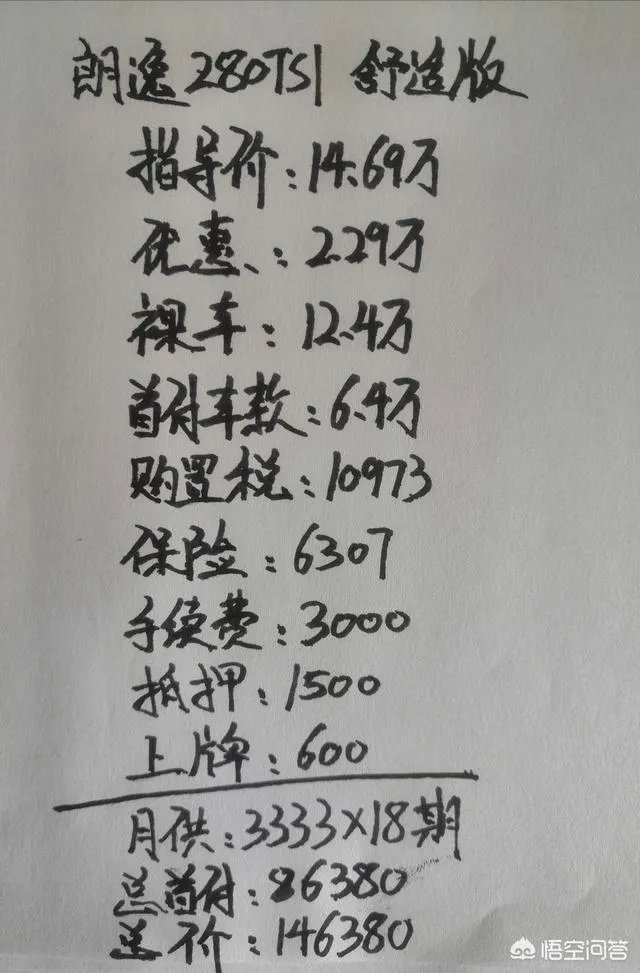 朗逸280TSI 舒适版
指导价:14.69万
优惠:2.29万
裸车:12.4万
首付车款:6.4万
购置税:10973
保险:6307
手续费:3000
抵押:1500
上牌:600
月供:3333×18期
总首付:86380
总价:146380
悟空问答